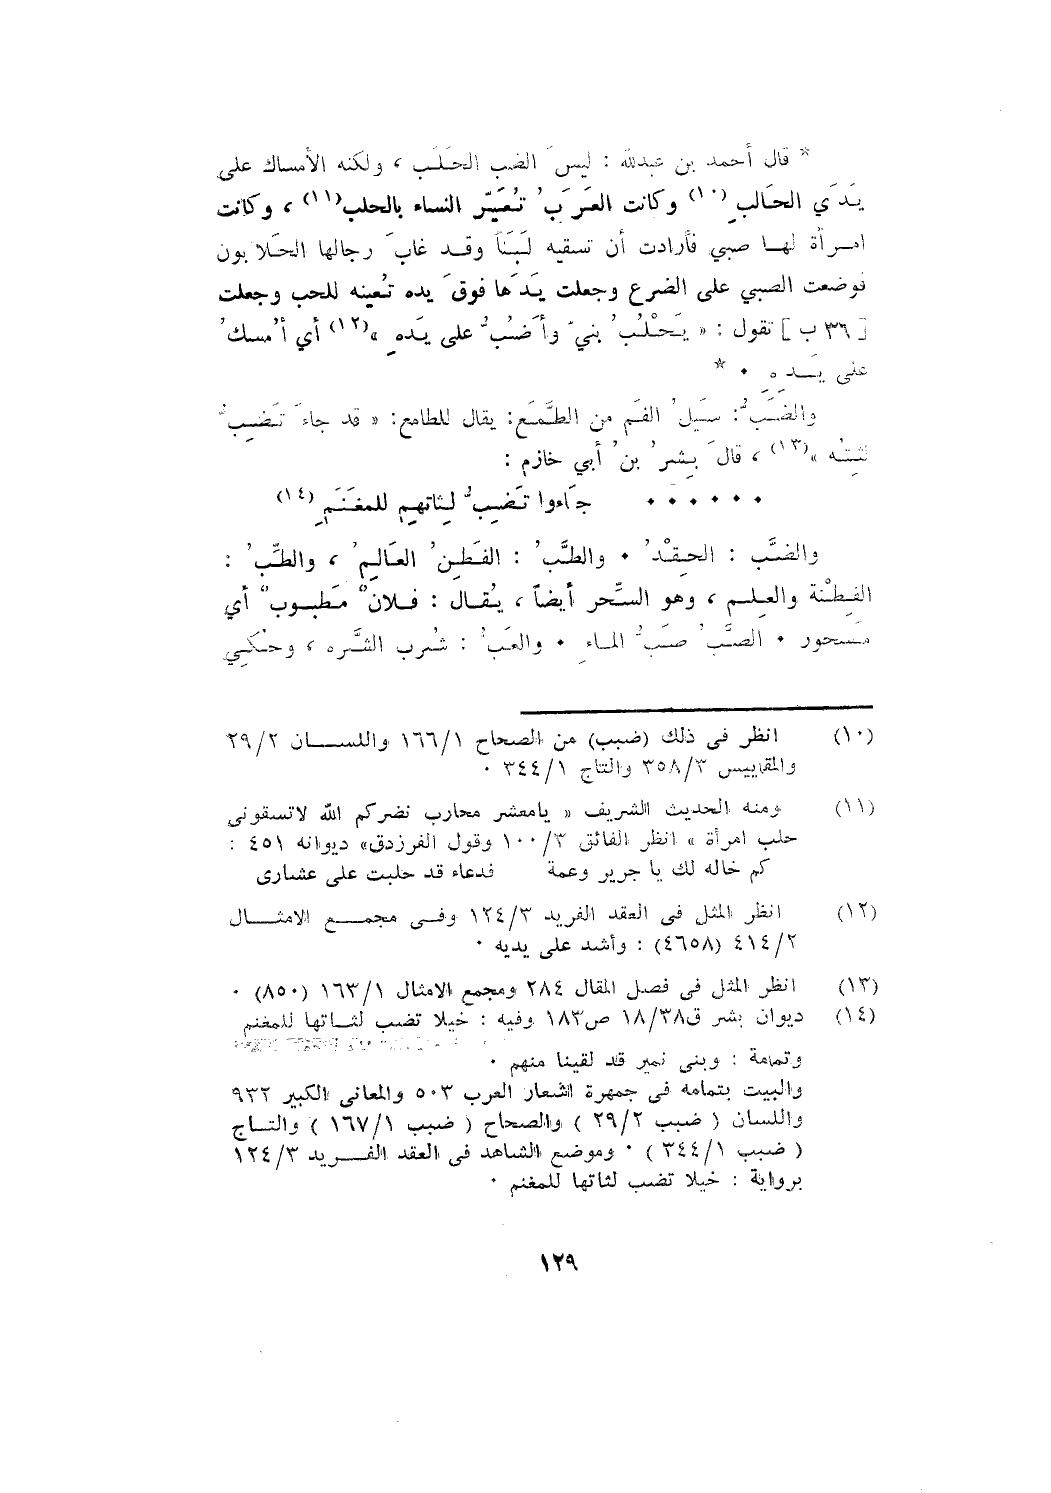 * قال أحمد بن عبدالله : ليسَ الضب الحَلَب ، ولكنه الأمساك على
يَدَي الحَالبِ (١٠) وكانت العَرَبُ تُعَيِّر النساء بالحلب(١١) ، وكانت
امرأة لها صبي فأرادت أن تسقيه لَبَنَاً وقد غابَ رجالها الحَلابون
فوضعت الصبي على الضرع وجعلت يَدَها فوقَ يده تُعينه للحب وجعلت
[ ٣٦ ب ] تقول : « يَحْلُبُ بنيّ وأَضُبُّ على يَدهِ »(١٢) أي أُمسكُ
على يَدهِ . *
والضَّبُّ : سَيَلُ الفَم من الطَّمَع: يقال للطامع: « قد جاءَ تَضِبُّ
لثتُه »(١٣) ، قالَ بِشرُ بنُ أبي خازم :
. . . . . . جَاءوا تَضِبُّ لِثاتهم للمغنَمِ (١٤)
والضَّب : الحِقدُ . والطَّبُ : الفَطِنُ العَالِمُ ، والطِّبُ :
الفِطْنة والعِلم ، وهو السِّحر أيضاً ، يُقال : فلانٌ مَطبوبٌ أي
مَسحور . الصَّبُ صَبُّ الماءِ . والعَبُّ : شُرب الشَّره ، وحُكِي
(١٠) انظر فى ذلك (ضبب) من الصحاح ١٦٦/١ واللسان ٢٩/٢
والمقاييس ٣٥٨/٣ والتاج ٣٤٤/١ .
(١١) ومنه الحديث الشريف « يامعشر محارب نضركم الله لاتسقونى
حلب امرأة » انظر الفائق ١٠٠/٣ وقول الفرزدق» ديوانه ٤٥١ :
كم خاله لك يا جرير وعمة فدعاء قد حلبت على عشارى
(١٢) انظر المثل فى العقد الفريد ١٢٤/٣ وفى مجمع الامثال
٤١٤/٢ (٤٦٥٨) : وأشد على يديه .
(١٣) انظر المثل فى فصل المقال ٢٨٤ ومجمع الامثال ١٦٣/١ (٨٥٠) .
(١٤) ديوان بشر ق١٨/٣٨ ص١٨٣ وفيه : خيلا تضب لثاتها للمغنم
وتمامة : وبنى نمير قد لقينا منهم .
والبيت بتمامه فى جمهرة اشعار العرب ٥٠٣ والمعانى الكبير ٩٣٢
واللسان ( ضبب ٢٩/٢ ) والصحاح ( ضبب ١٦٧/١ ) والتاج
( ضبب ٣٤٤/١ ) . وموضع الشاهد فى العقد الفريد ١٢٤/٣
برواية : خيلا تضب لثاتها للمغنم .
١٢٩